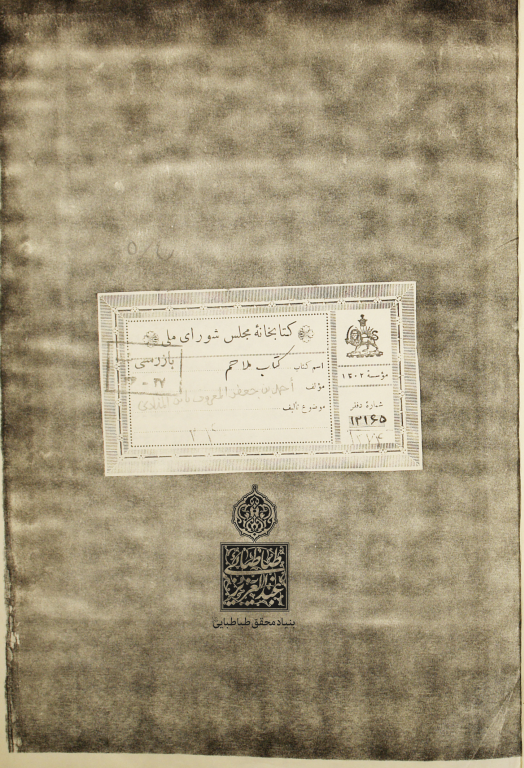 کتابخانهٔ مجلس شورای ملی
اسم کتاب کتاب ملاحم
مؤلف احمد بن جعفر المعروف بابن المنادی
موضوع تألیف
مؤسسهٔ ۱۳۰۲
شمارهٔ دفتر
۱۲۱۶۵
بازرسی
۳۷ -
بنیاد محقق طباطبایی